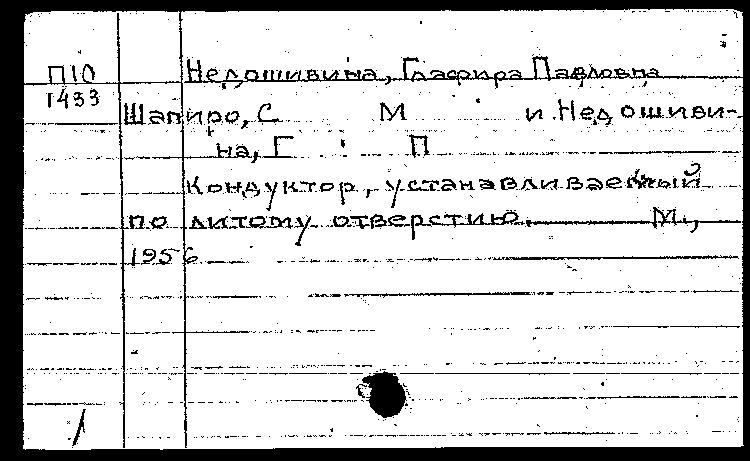 П10
1433
Недошивина, Глафира Павловна
Шапиро, С М и Недошиви-
на, Г П
Кондуктор, устанавливаемый
по литому отверстию. — М.,
1956
1